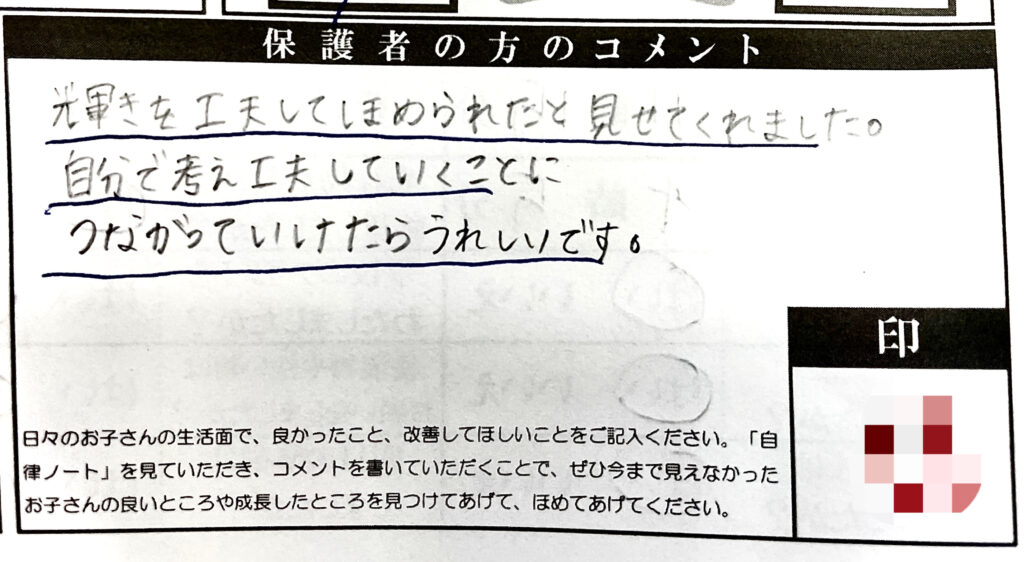 保護者の方のコメント
光輝きを工夫してほめられたと見せてくれました。
自分で考え工夫していくことに
つながっていけたらうれしいです。
印
日々のお子さんの生活面で、良かったこと、改善してほしいことをご記入ください。「自
律ノート」を見ていただき、コメントを書いていただくことで、ぜひ今まで見えなかった
お子さんの良いところや成長したところを見つけてあげて、ほめてあげてください。